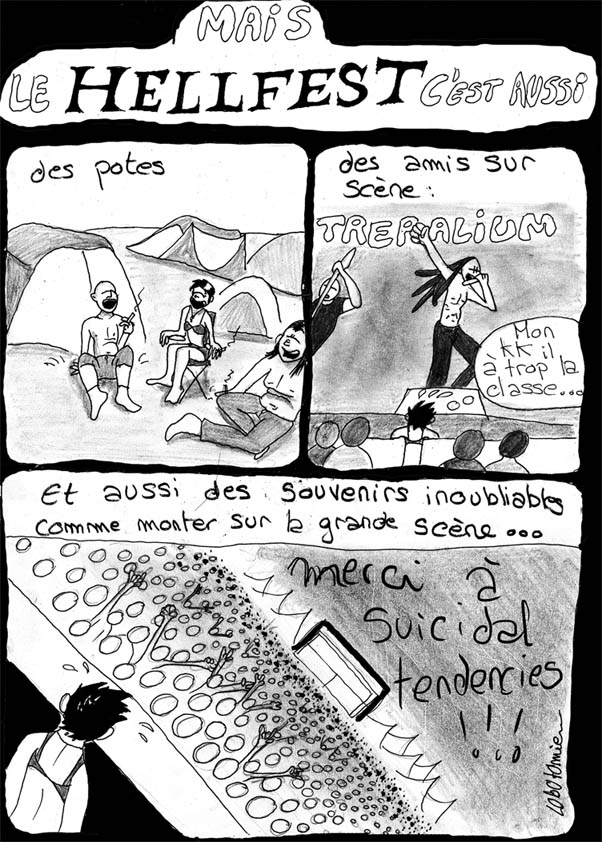 MAIS
LE HELLFEST C'EST AUSSI
des potes
des amis sur
scène :
TREPALIUM
Mon
kk il
à trop la
classe...
Et aussi des souvenirs inoubliables
commme monter sur la grande scène...
merci à
suicidal
tendencies
!!!